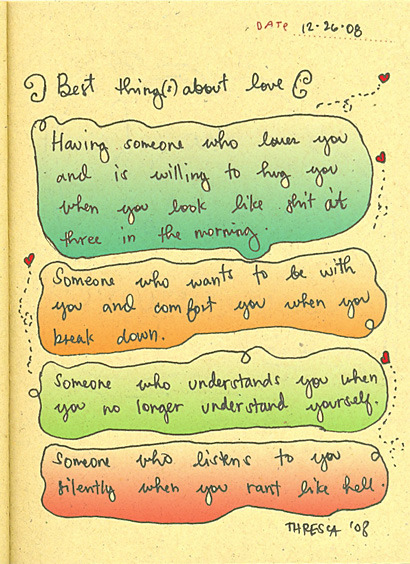 DATE 12·26·08
Best thing(s) about love
Having someone who loves you
and is willing to hug you
when you look like shit at
three in the morning.
Someone who wants to be with
you and comfort you when you
break down.
Someone who understands you when
you no longer understand yourself.
Someone who listens to you
silently when you rant like hell.
THRESCA '08